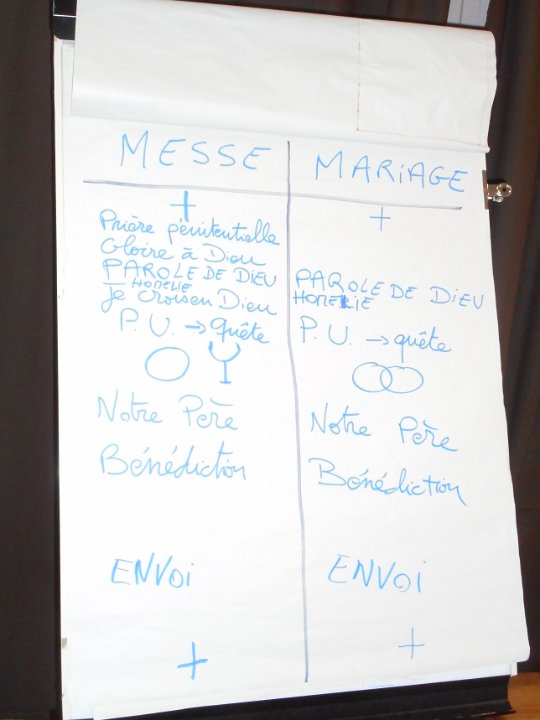 MESSE
Prière pénitentielle
Gloire à Dieu
PAROLE DE DIEU
HOMELIE
Je crois en Dieu
P.U. → quête
Notre Père
Bénédiction
ENVOi
MARiAGE
PAROLE DE DiEU
HOMELIE
P.U. → quête
Notre Père
Bénédiction
ENVOi